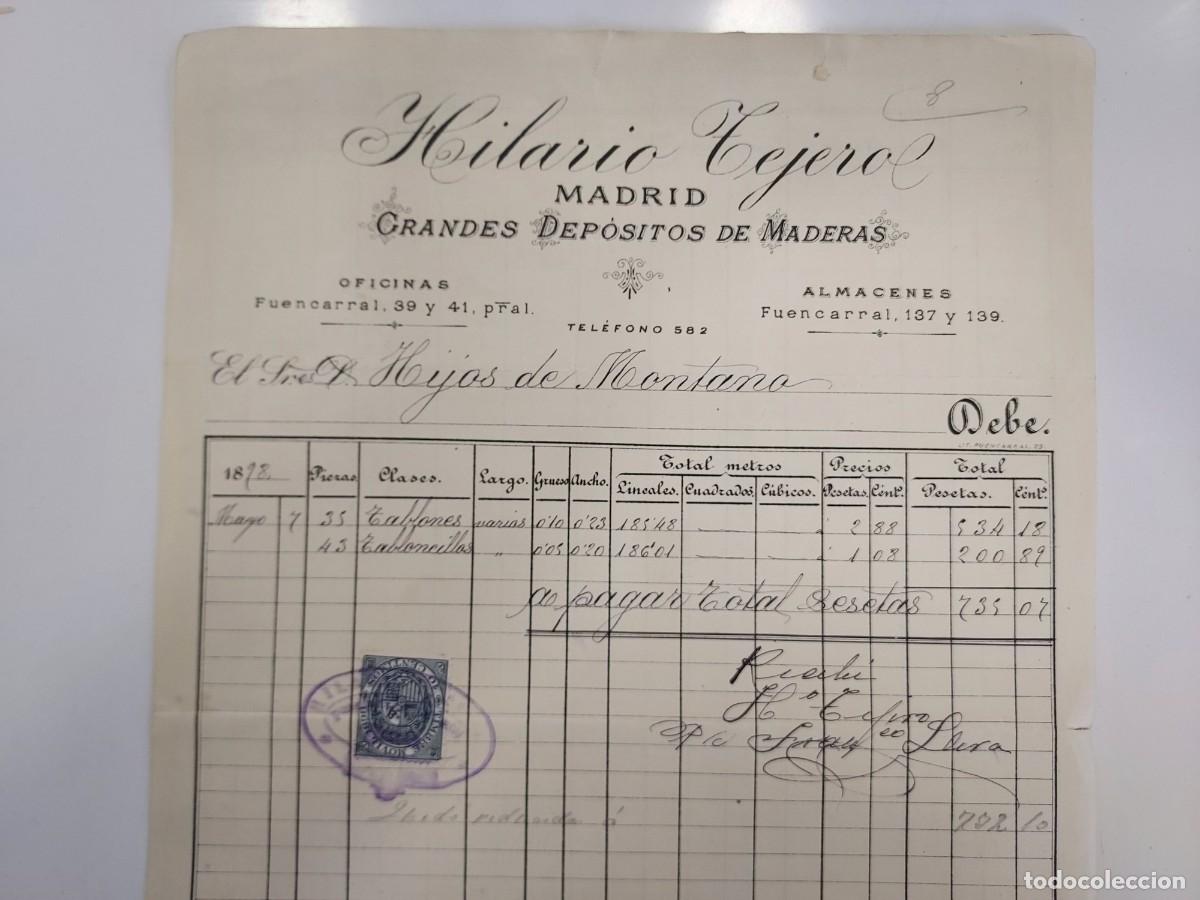 8
Hilario Tejero
MADRID
GRANDES DEPÓSITOS DE MADERAS
OFICINAS
Fuencarral, 39 y 41, pral.
TELÉFONO 582
ALMACENES
Fuencarral, 137 y 139.
El Sres D. Hijos de Montano
Debe.
LIT. FUENCARRAL, 23.
1892 Piezas Clases. Largo. Grueso Ancho. Total metros Precios Total
Lineales. Cuadrados. Cúbicos. Pesetas. Cént. Pesetas. Cént.
Mayo 7 35 Tablones varias 0'10 0'23 185'48 — — á 2 88 534 18
43 Tabloncillos " 0'05 0'20 186'01 — — á 1 08 200 89
a pagar Total Pesetas 735 07
Recibí
Ho Tejero
P/o Franco Llera
Queda reducida á 732 10
todocoleccion